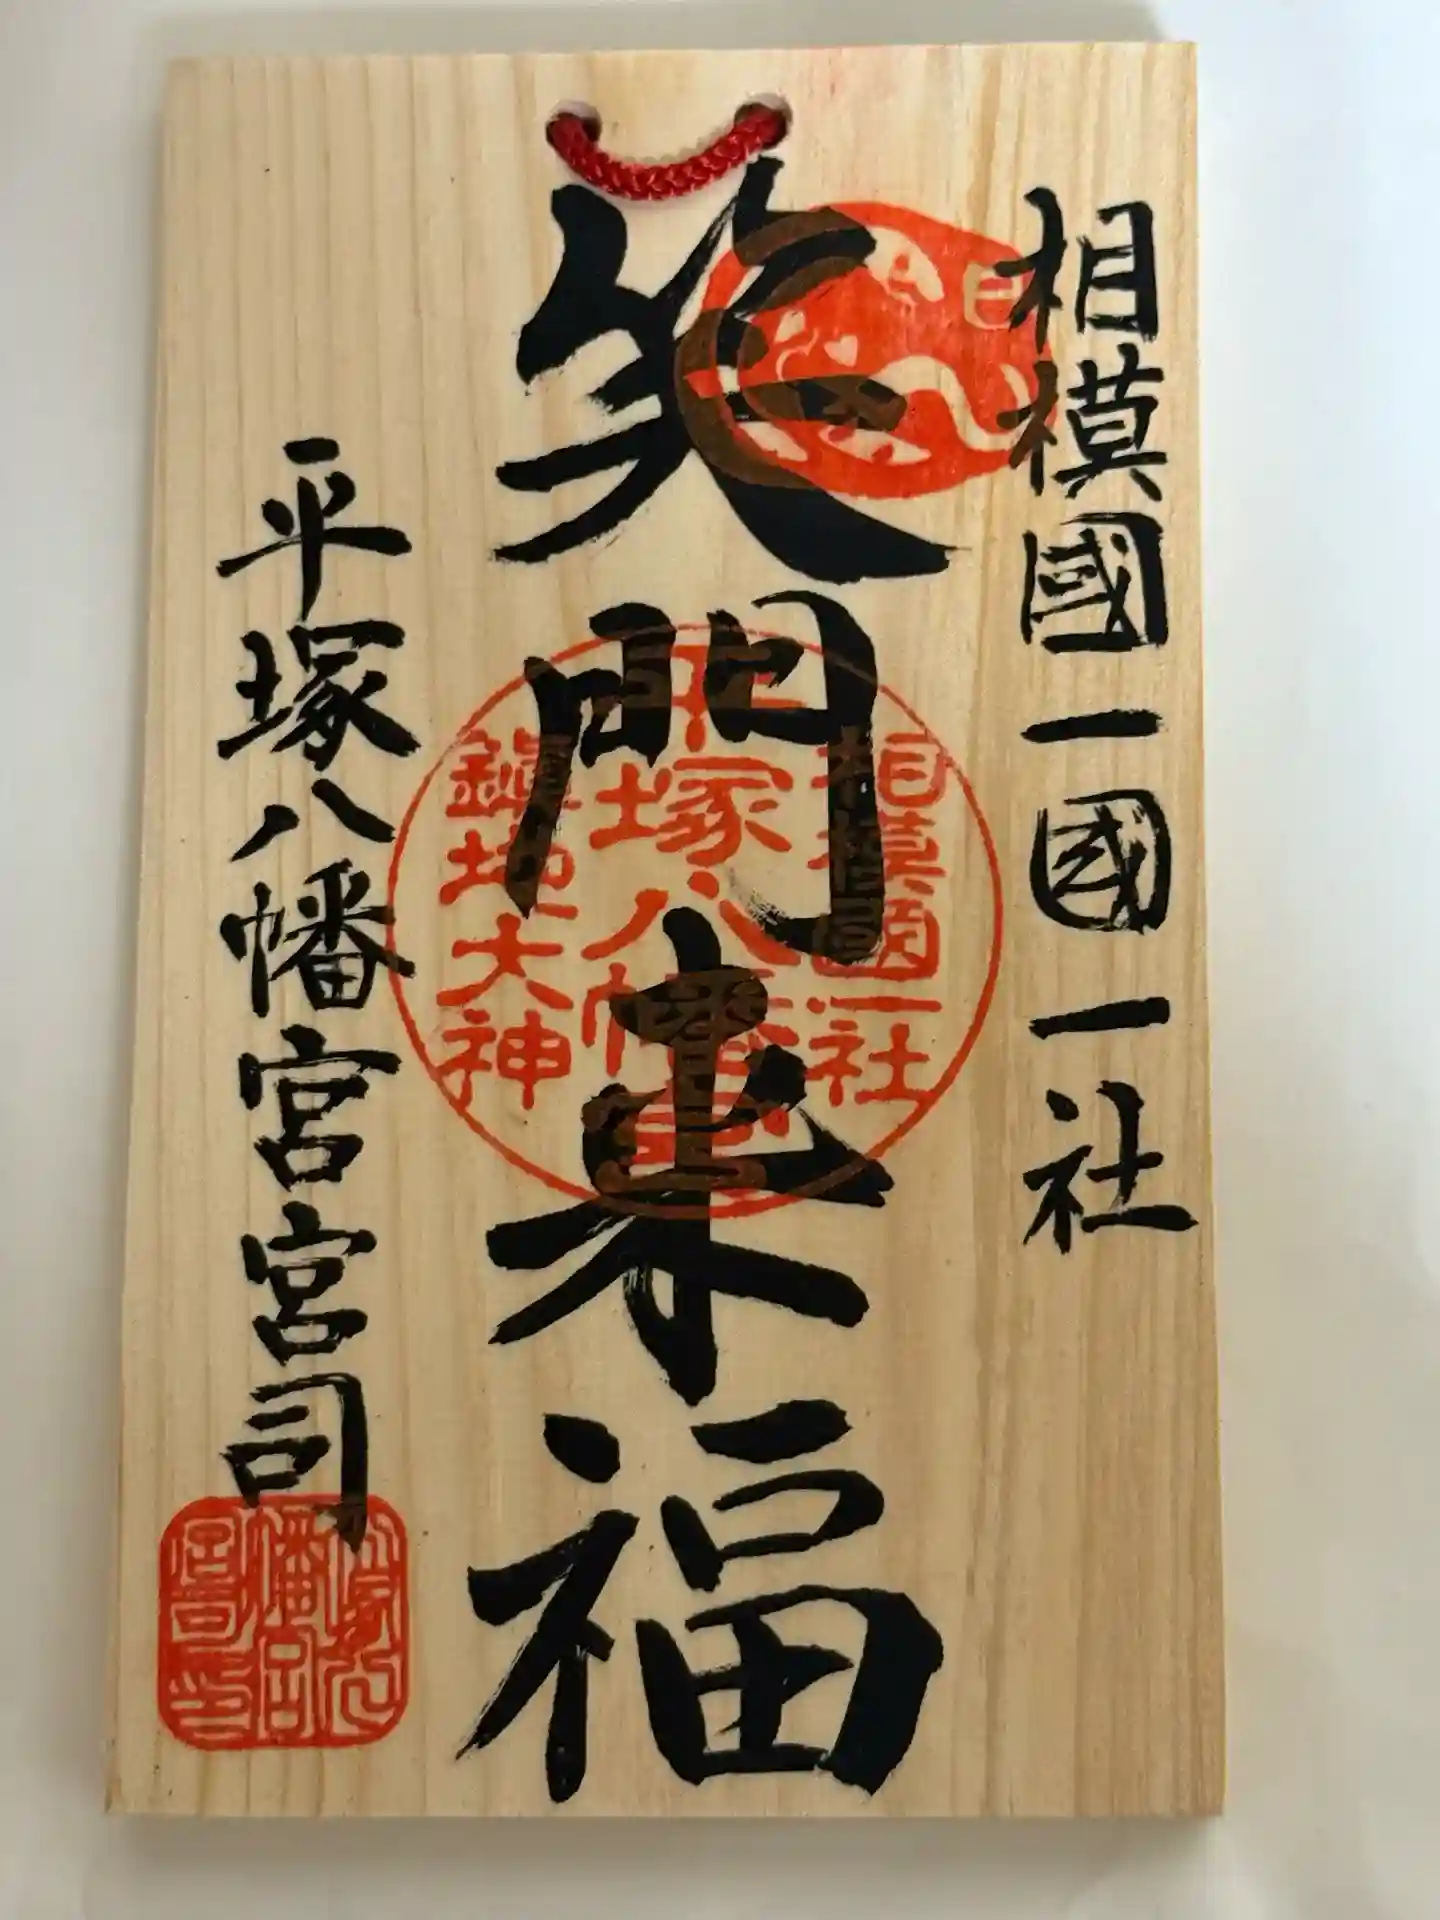 相模國一國一社
巳
笑門来福
相模國一社
平塚八幡宮
鎮地大神
平塚八幡宮宮司